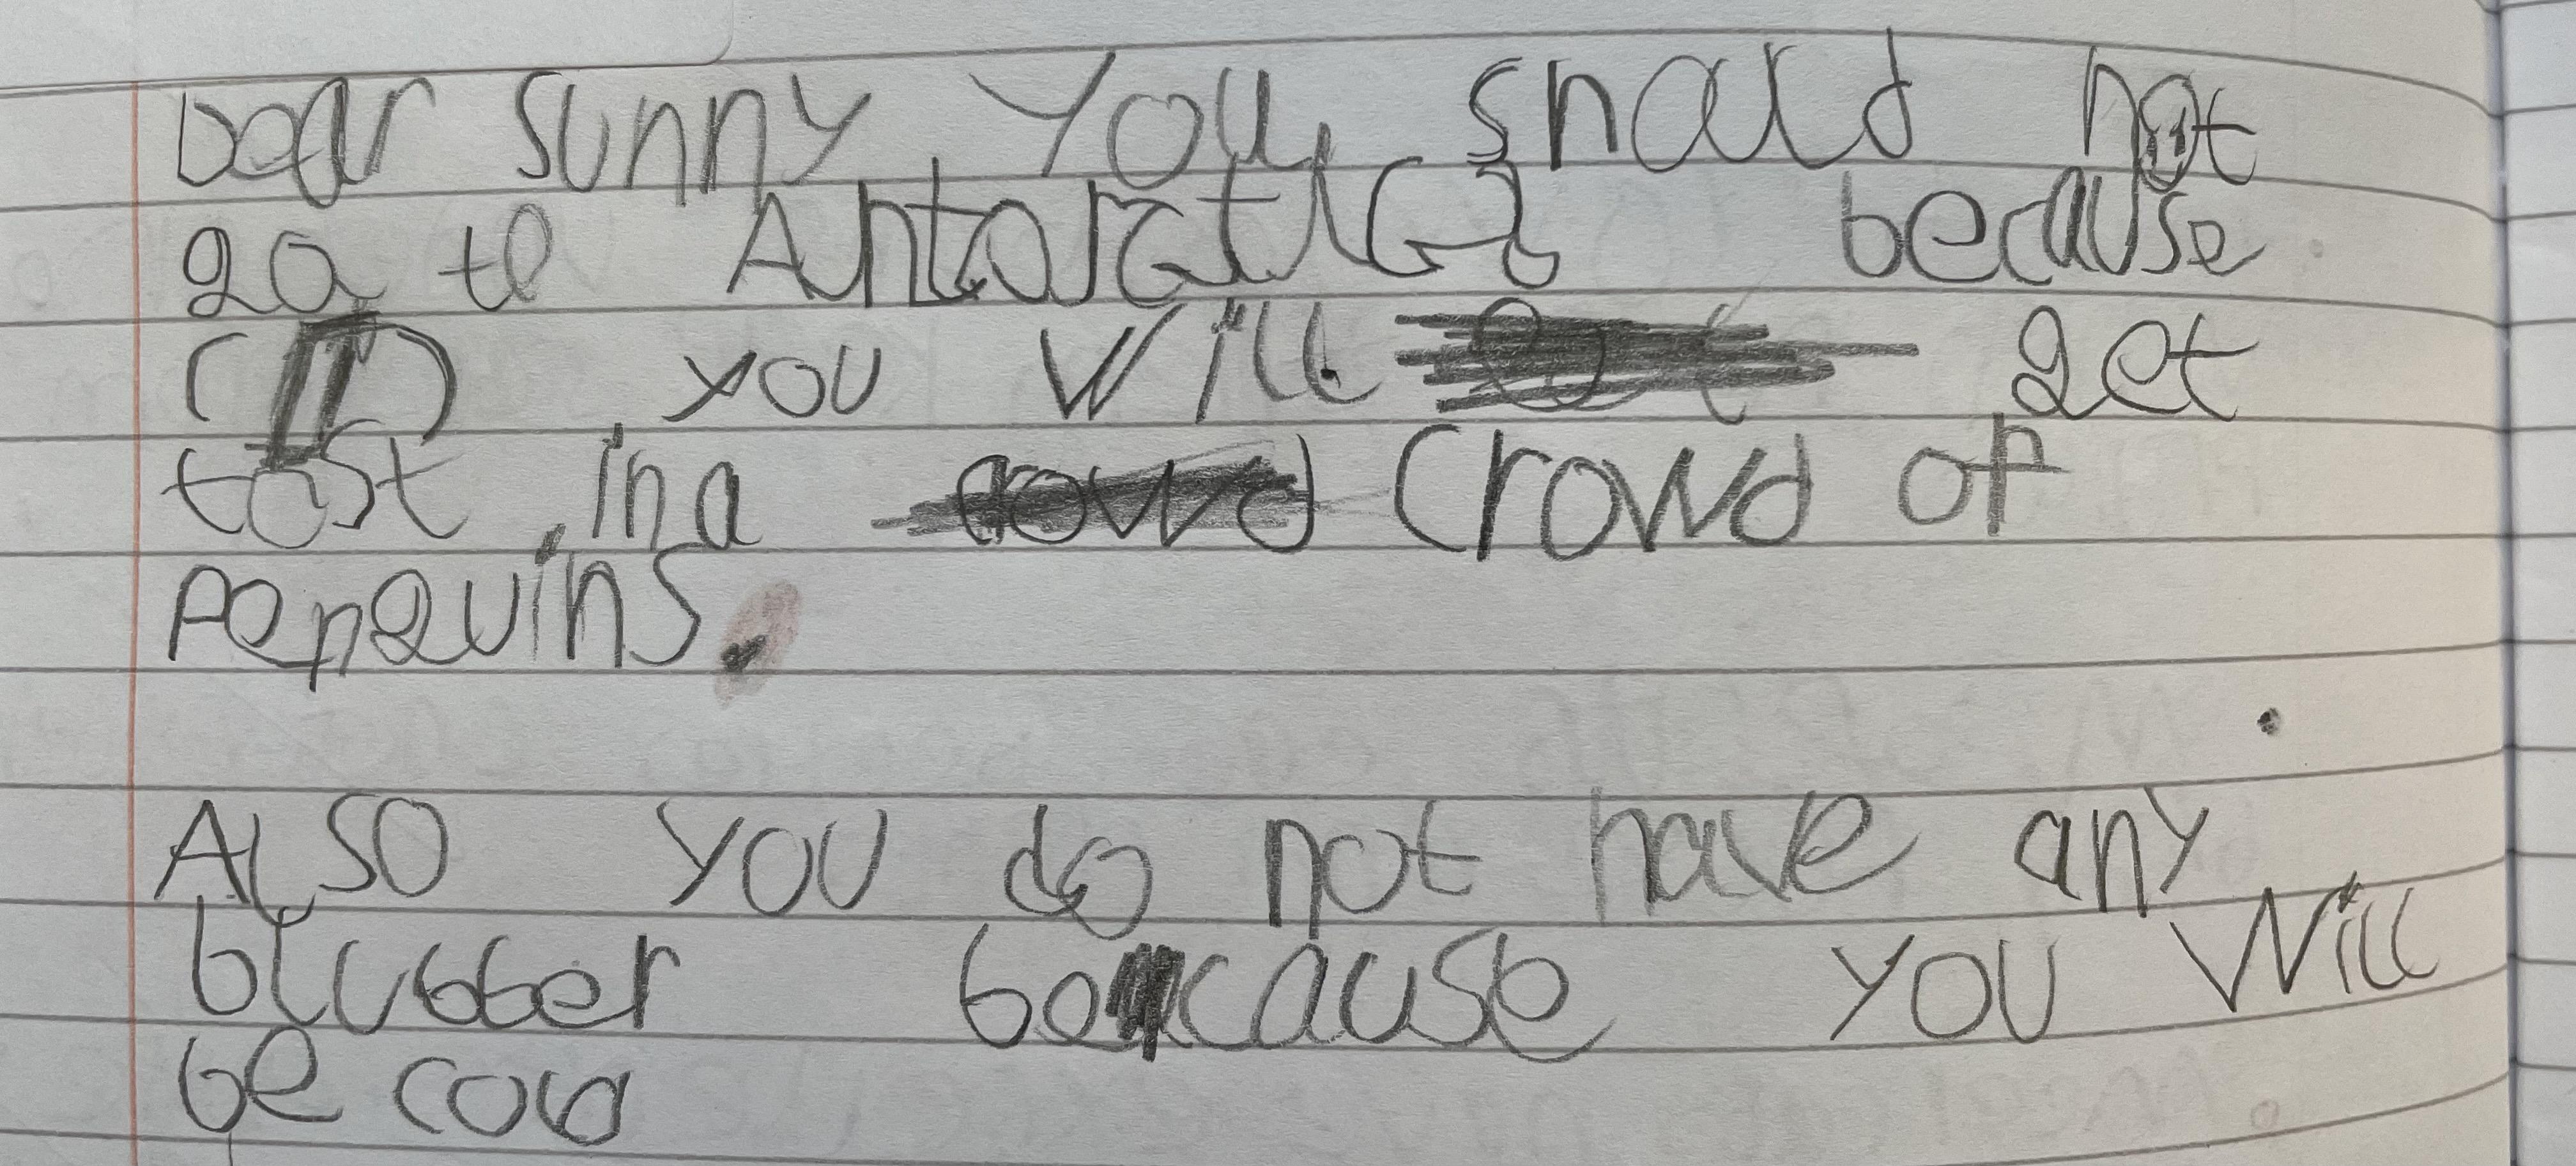 Dear Sunny You shald not
go to Antarctica because
you will get
lost in a crowd of
penguins.
Also you do not have any
blubber because you will
be cold